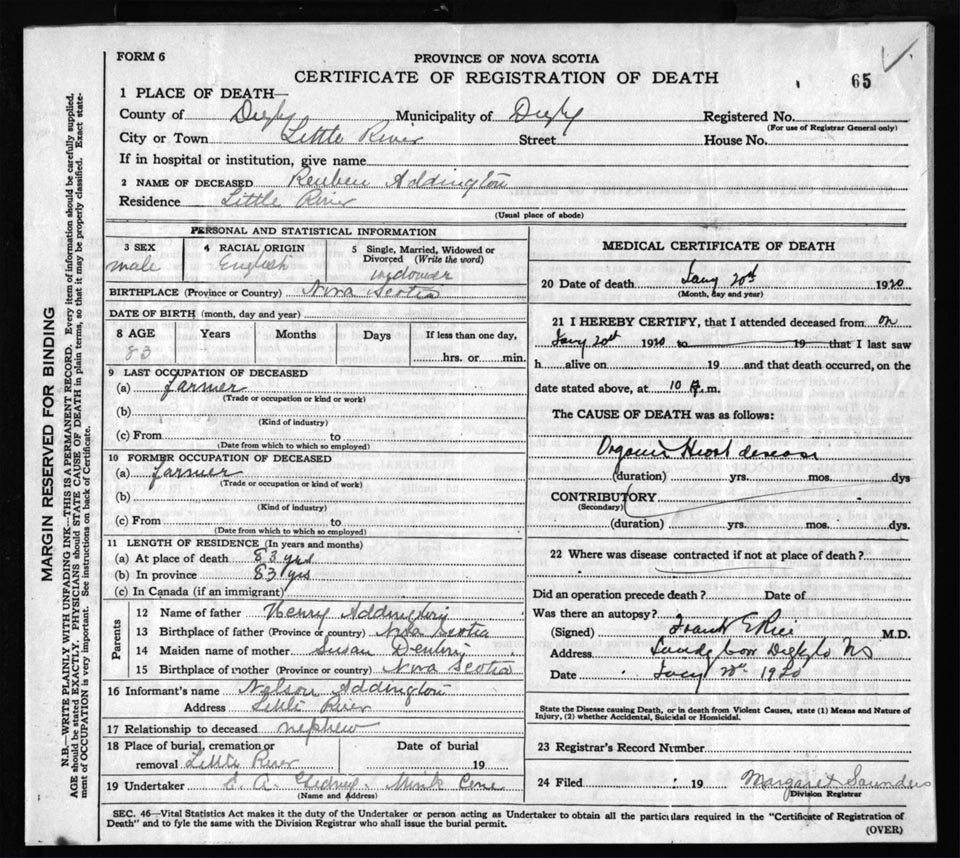 FORM 6
PROVINCE OF NOVA SCOTIA
CERTIFICATE OF REGISTRATION OF DEATH
65
1 PLACE OF DEATH—
County of Digby Municipality of Digby Registered No.
(For use of Registrar General only)
City or Town Little River Street House No.
If in hospital or institution, give name
2 NAME OF DECEASED Reuben Addington
Residence Little River
(Usual place of abode)
PERSONAL AND STATISTICAL INFORMATION
3 SEX
male
4 RACIAL ORIGIN
English
5 Single, Married, Widowed or Divorced (Write the word)
widower
BIRTHPLACE (Province or Country) Nova Scotia
DATE OF BIRTH (month, day and year)
8 AGE Years Months Days If less than one day,
83 hrs. or min.
9 LAST OCCUPATION OF DECEASED
(a) farmer
(Trade or occupation or kind or work)
(b)
(Kind of industry)
(c) From to
(Date from which to which so employed)
10 FORMER OCCUPATION OF DECEASED
(a) farmer
(Trade or occupation or kind or work)
(b)
(Kind of industry)
(c) From to
(Date from which to which so employed)
11 LENGTH OF RESIDENCE (In years and months)
(a) At place of death 83 yrs
(b) In province 83 yrs
(c) In Canada (if an immigrant)
Parents
12 Name of father Henry Addington
13 Birthplace of father (Province or country) Nova Scotia
14 Maiden name of mother Susan
15 Birthplace of mother (Province or country) Nova Scotia
16 Informant's name Nelson Addington
Address Little River
17 Relationship to deceased nephew
18 Place of burial, cremation or removal Little River
Date of burial 19
19 Undertaker E. A. Mink Cove
(Name and Address)
MEDICAL CERTIFICATE OF DEATH
20 Date of death Jany 20th 1920
(Month, day and year)
21 I HEREBY CERTIFY, that I attended deceased from on
Jany 20th 1920 to 19 that I last saw
h alive on 19 and that death occurred, on the
date stated above, at 10 m.
The CAUSE OF DEATH was as follows:
Organic Heart disease
(duration) yrs. mos. dys
CONTRIBUTORY
(Secondary)
(duration) yrs. mos. dys.
22 Where was disease contracted if not at place of death?
Did an operation precede death? Date of
Was there an autopsy?
(Signed) Frank E Rice M.D.
Address Sandy Cove Digby Co NS
Date Jany 1920
State the Disease causing Death, or in death from Violent Causes, state (1) Means and Nature of
Injury, (2) whether Accidental, Suicidal or Homicidal.
23 Registrar's Record Number
24 Filed 19 Margaret Saunders
Division Registrar
SEC. 46—Vital Statistics Act makes it the duty of the Undertaker or person acting as Undertaker to obtain all the particulars required in the "Certificate of Registration of
Death" and to fyle the same with the Division Registrar who shall issue the burial permit.
(OVER)
MARGIN RESERVED FOR BINDING
N.B.—WRITE PLAINLY WITH UNFADING INK—THIS IS A PERMANENT RECORD. Every item of information should be carefully supplied.
AGE should be stated EXACTLY. PHYSICIANS should STATE CAUSE OF DEATH in plain terms, so that it may be properly classified. Exact state-
ment of OCCUPATION is very important. See instructions on back of Certificate.